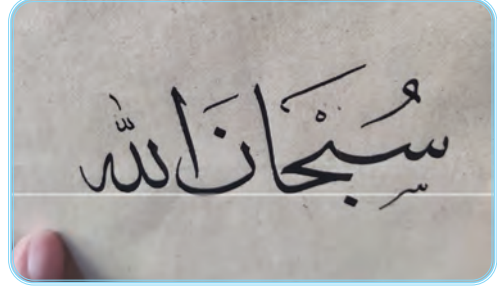 سُبْحَانَ الله